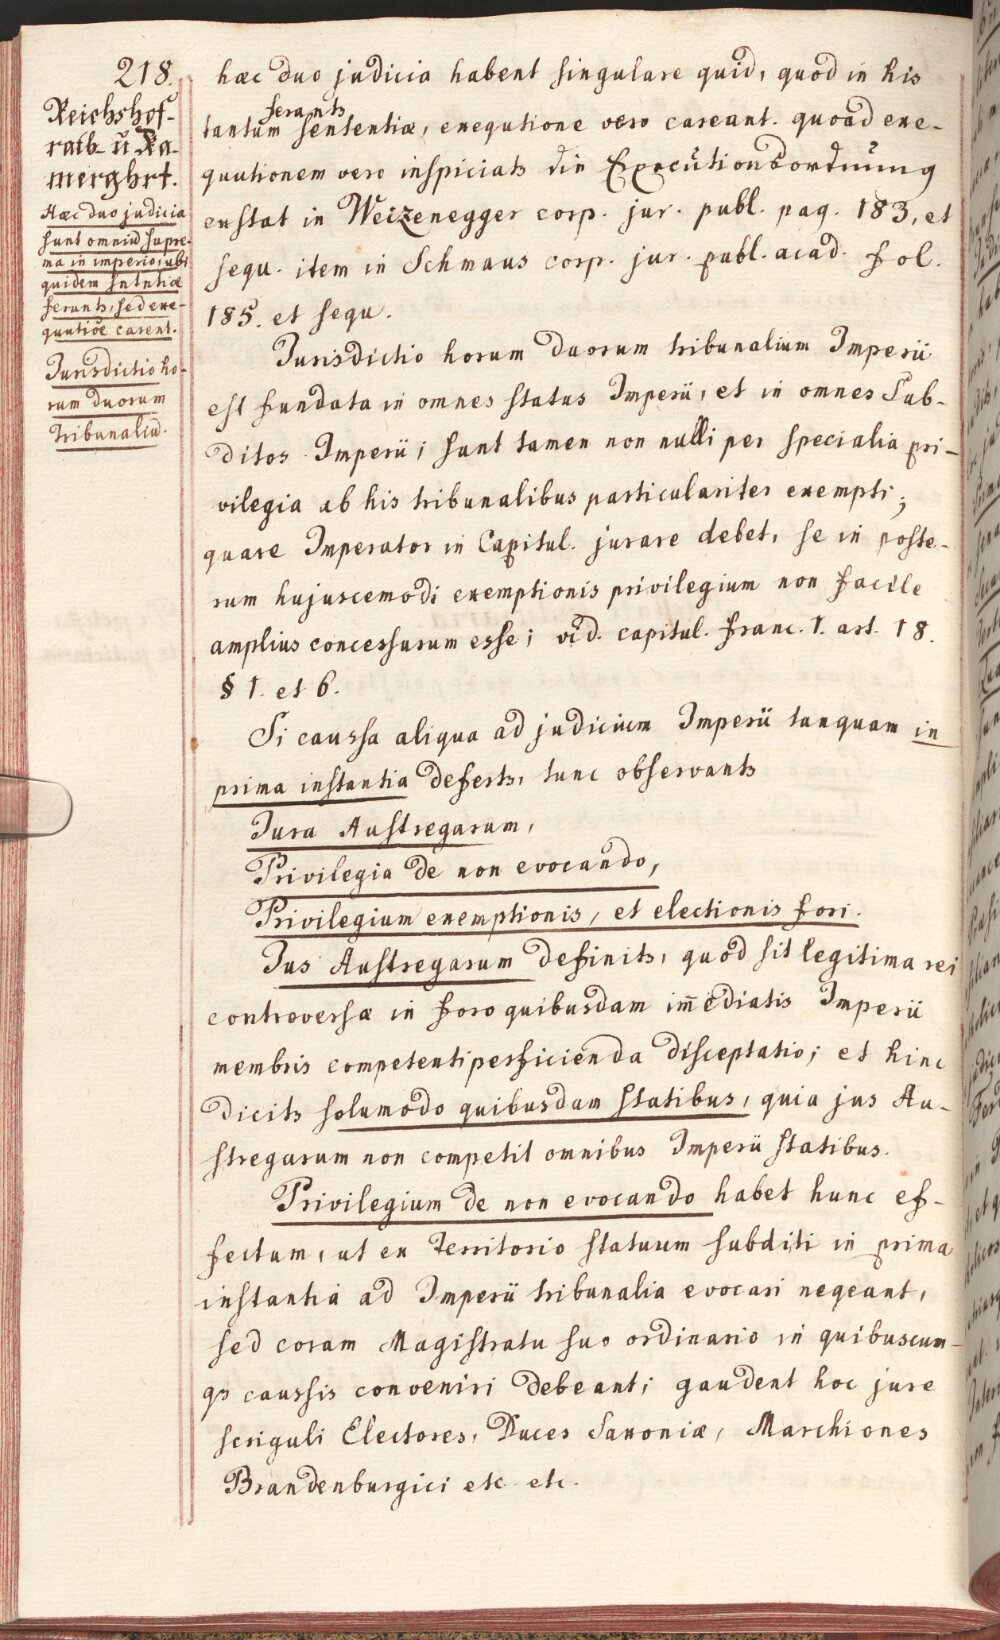 218.
Reichshof-
rath u Ka-
merghrt.
Hæc duo judicia
sunt omniu supre-
ma in imperio, ubi
quidem sntntiæ
ferunts, sed exe-
qutiõe carent.
Jurisdictio ho-
rum duorum
tribunaliu.
hæc duo judicia habent singulare quid, quod in his
ferants
tantum sententiæ, exequtione vero careant. quoad exe-
quutionem vero inspiciats die Executionsordnung
exstat in Weizenegger corp. jur. publ. pag. 183, et
sequ. item in Schmaus corp. jur. publ. acad. fol.
185. et sequ.
Jurisdictio horum duorum tribunalium Imperii
est fundata in omnes status Imperii, et in omnes Sub-
ditos Imperii; sunt tamen non nulli per specialia pri-
vilegia ab his tribunalibus particulariter exempti;
quare Imperator in Capitul. jurare debet, se in poste-
rum hujuscemodi exemptionis privilegium non facile
amplius concessurum esse; vid. capitul. Franc. 1. art. 18.
§ 1. et 6.
Si caussa aliqua ad judicium Imperii tanquam in
prima instantia deferts, tunc observants
Jura Austregarum,
Privilegia de non evocando,
Privilegium exemptionis, et electionis fori.
Jus Austregarum definits, quod sit legitima rei
controversæ in foro quibusdam im̄ediatis Imperii
membris competenti perficienda disceptatio; et hinc
dicits solumodo quibusdam statibus, quia jus Au-
stregarum non competit omnibus Imperii statibus.
Privilegium de non evocando habet hunc ef-
fectum, ut ex territorio statuum subditi in prima
instantia ad Imperii tribunalia evocari neqeant,
sed coram Magistratu suo ordinario in quibuscum-
qs caussis conveniri debeant; gaudent hoc jure
singuli Electores, Duces Saxoniæ, Marchiones
Brandenburgici etc etc.